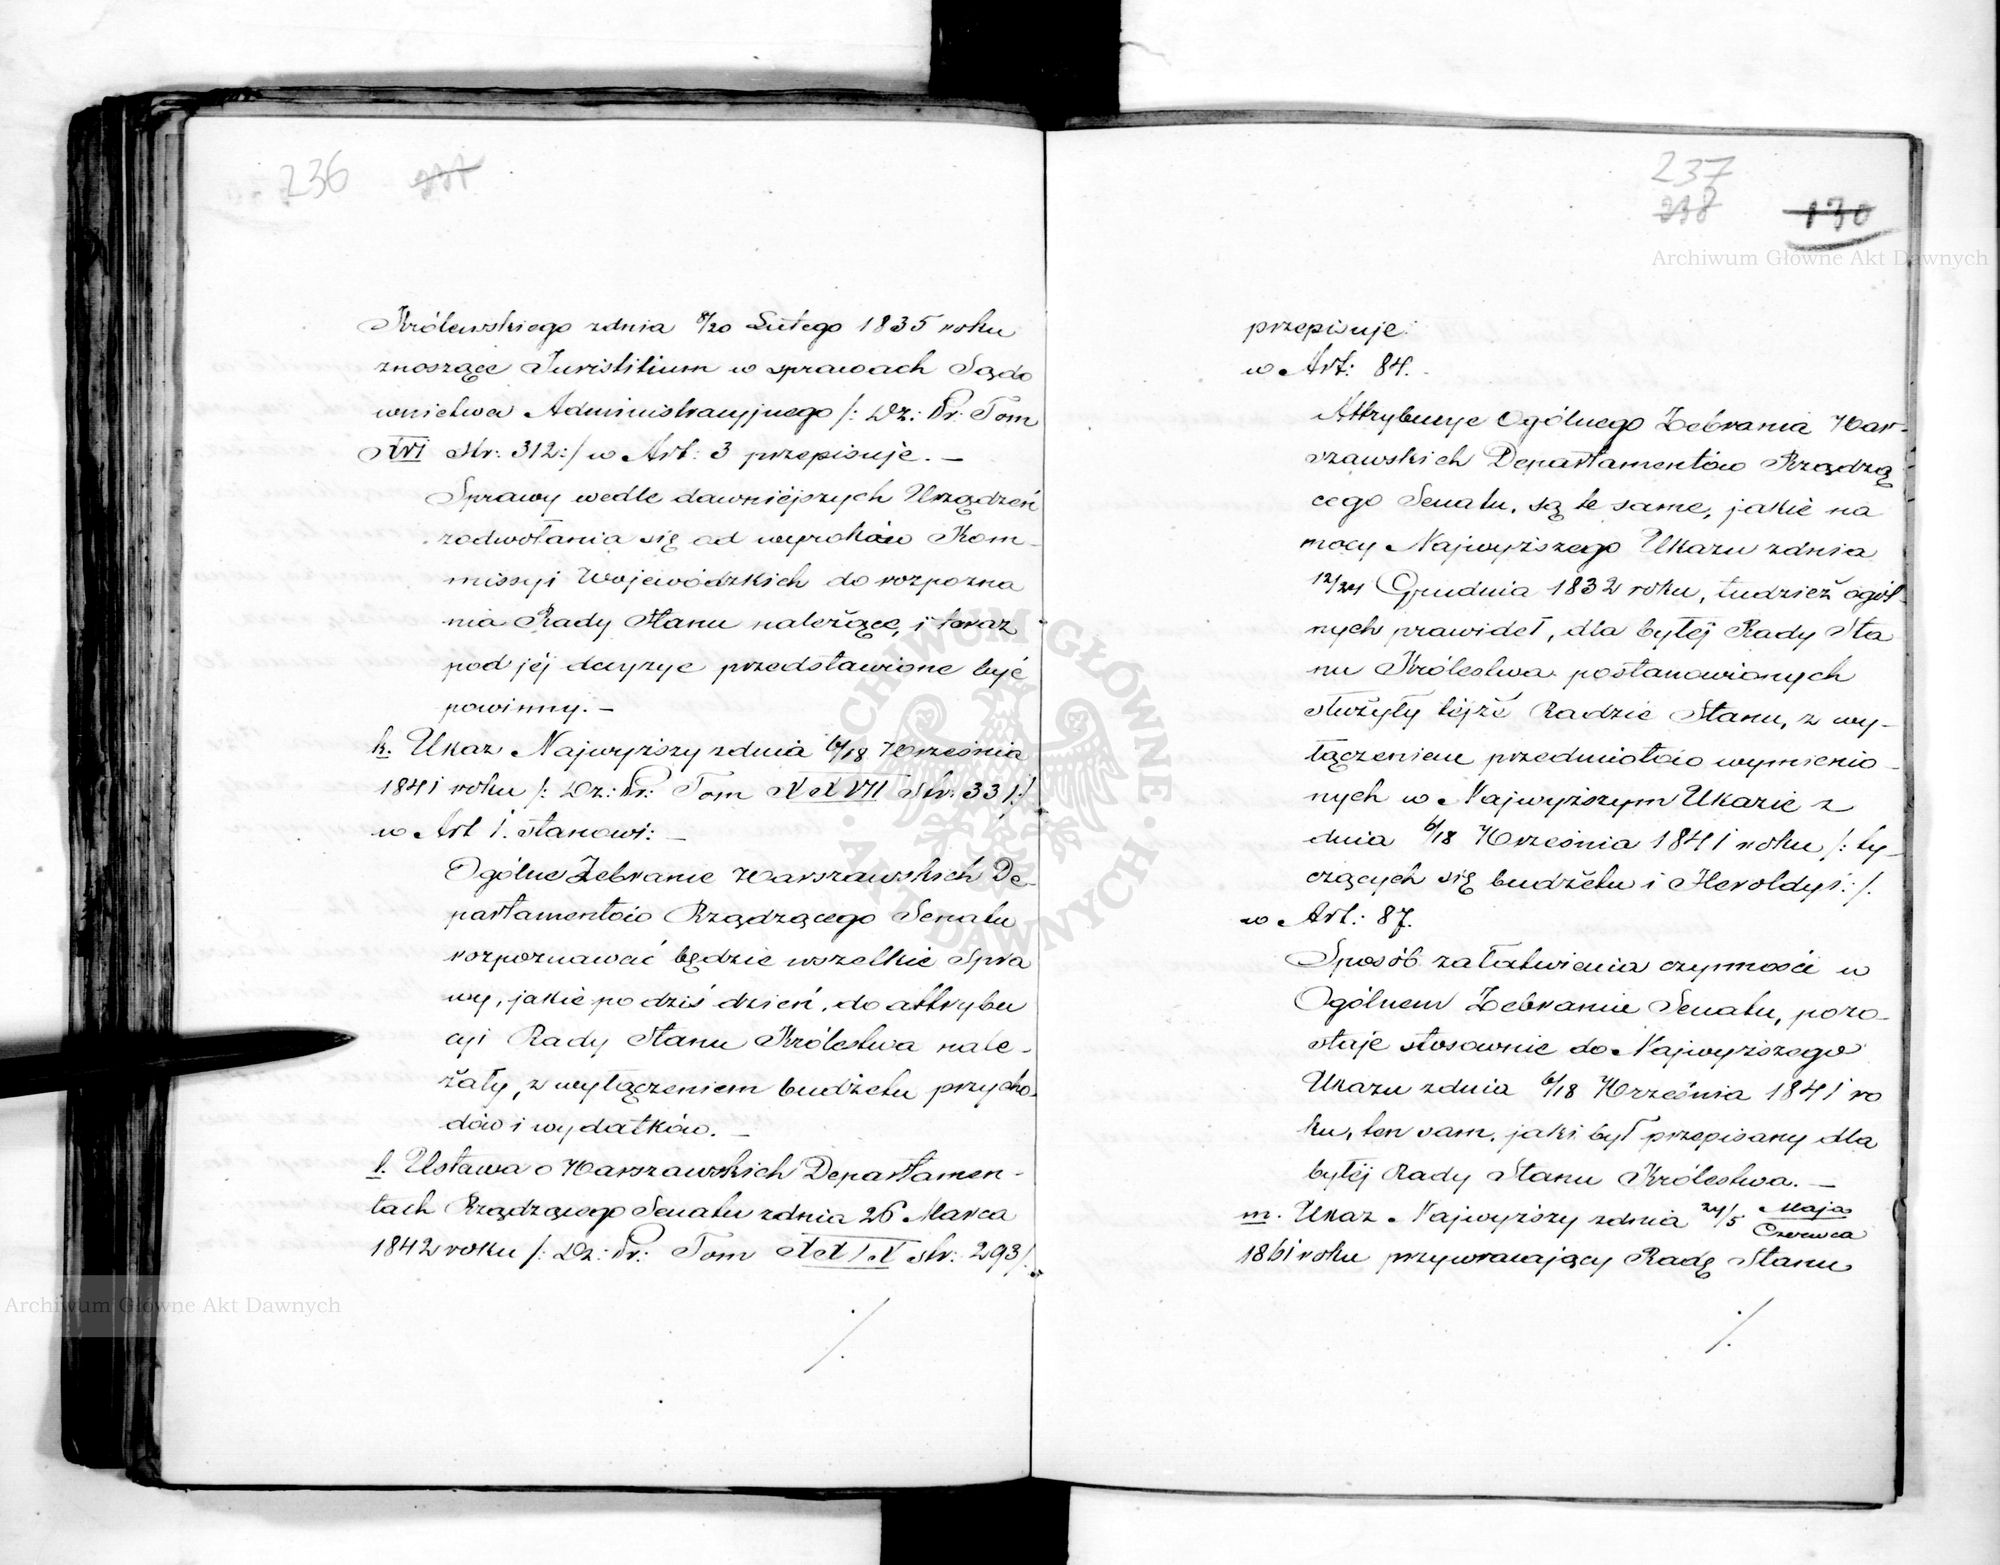 236 237
Królewskiego zdnia 8/20 Lutego 1835 roku
znoszące Juristitium w sprawach Sądo
wnictwa Administracyjnego /: Dz: Pr: Tom
XVI Str: 312:/ w Art: 3 przepisuje. —
Sprawy wedle dawniejszych Urządzeń
zodwołania się od wyroków Kom-
missyi Wojewódzkich do rozpozna
nia Rady Stanu należące, i teraz
pod jéj decyzye przedstawione być
powinny. —
k. Ukaz Najwyższy zdnia 6/18 Września
1841 roku /: Dz: Pr: Tom XXVII Str: 331:/
w Art 1. stanowi: —
Ogólne Zebranie Warszawskich De-
partamentów Rządzącego Senatu
rozpoznawać będzie wszelkie Spra
wy, jakie po dziś dzień, do attrybu
cyi Rady Stanu Królestwa nale-
żały, z wyłączeniem budżetu przycho-
dów i wydatków. —
l. Ustawa o Warszawskich Departamen-
tach Rządzącego Senatu zdnia 26 Marca
1842 roku /: Dz: Pr: Tom XXIX str: 293/.
/.
237
238 130
przepisuje:
w Art: 84.
Attrybucye Ogólnego Zebrania War-
szawskich Departamentów Rządzą
cego Senatu, są te same, jakie na
mocy Najwyższego Ukazu zdnia
12/24 Grudnia 1832 roku, tudzież ogól-
nych prawideł, dla byłéj Rady Sta
nu Królestwa postanowionych
służyły téjże Radzie Stanu, z wy-
łączeniem przedmiotów wymienio-
nych w Najwyższym Ukazie z
dnia 6/18 Września 1841 roku /: ty-
czących się budżetu i Heroldyi:/.
w Art: 87.
Sposób załatwienia czynności w
Ogólnem Zebraniu Senatu, pozo-
staje stosownie do Najwyższego
Ukazu zdnia 6/18 Września 1841 ro
ku, ten sam, jaki był przepisany dla
byłéj Rady Stanu Królestwa. —
m. Ukaz Najwyższy zdnia 24/5 Maja/Czerwca
1861 roku przywracający Radę Stanu
/.
Archiwum Główne Akt Dawnych
ARCHIWUM GŁÓWNE · AKT DAWNYCH ·
Archiwum Główne Akt Dawnych